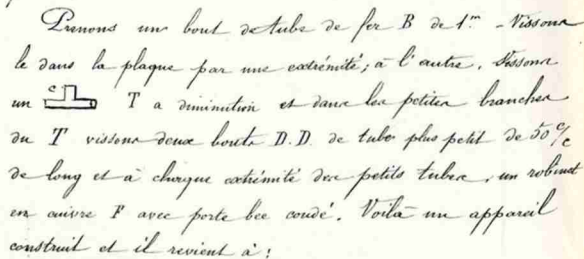 Prenons un bout de tube de fer B de 1m. - Vissons
le dans la plaque par une extrémité; à l'autre, vissons
un C T a diminution et dans les petites branches
du T vissons deux bouts D.D. de tube plus petit de 50 c/c
de long et à chaque extrémité des petits tubes, un robinet
en cuivre F avec porte bec coudé. Voilà un appareil
construit et il revient à: